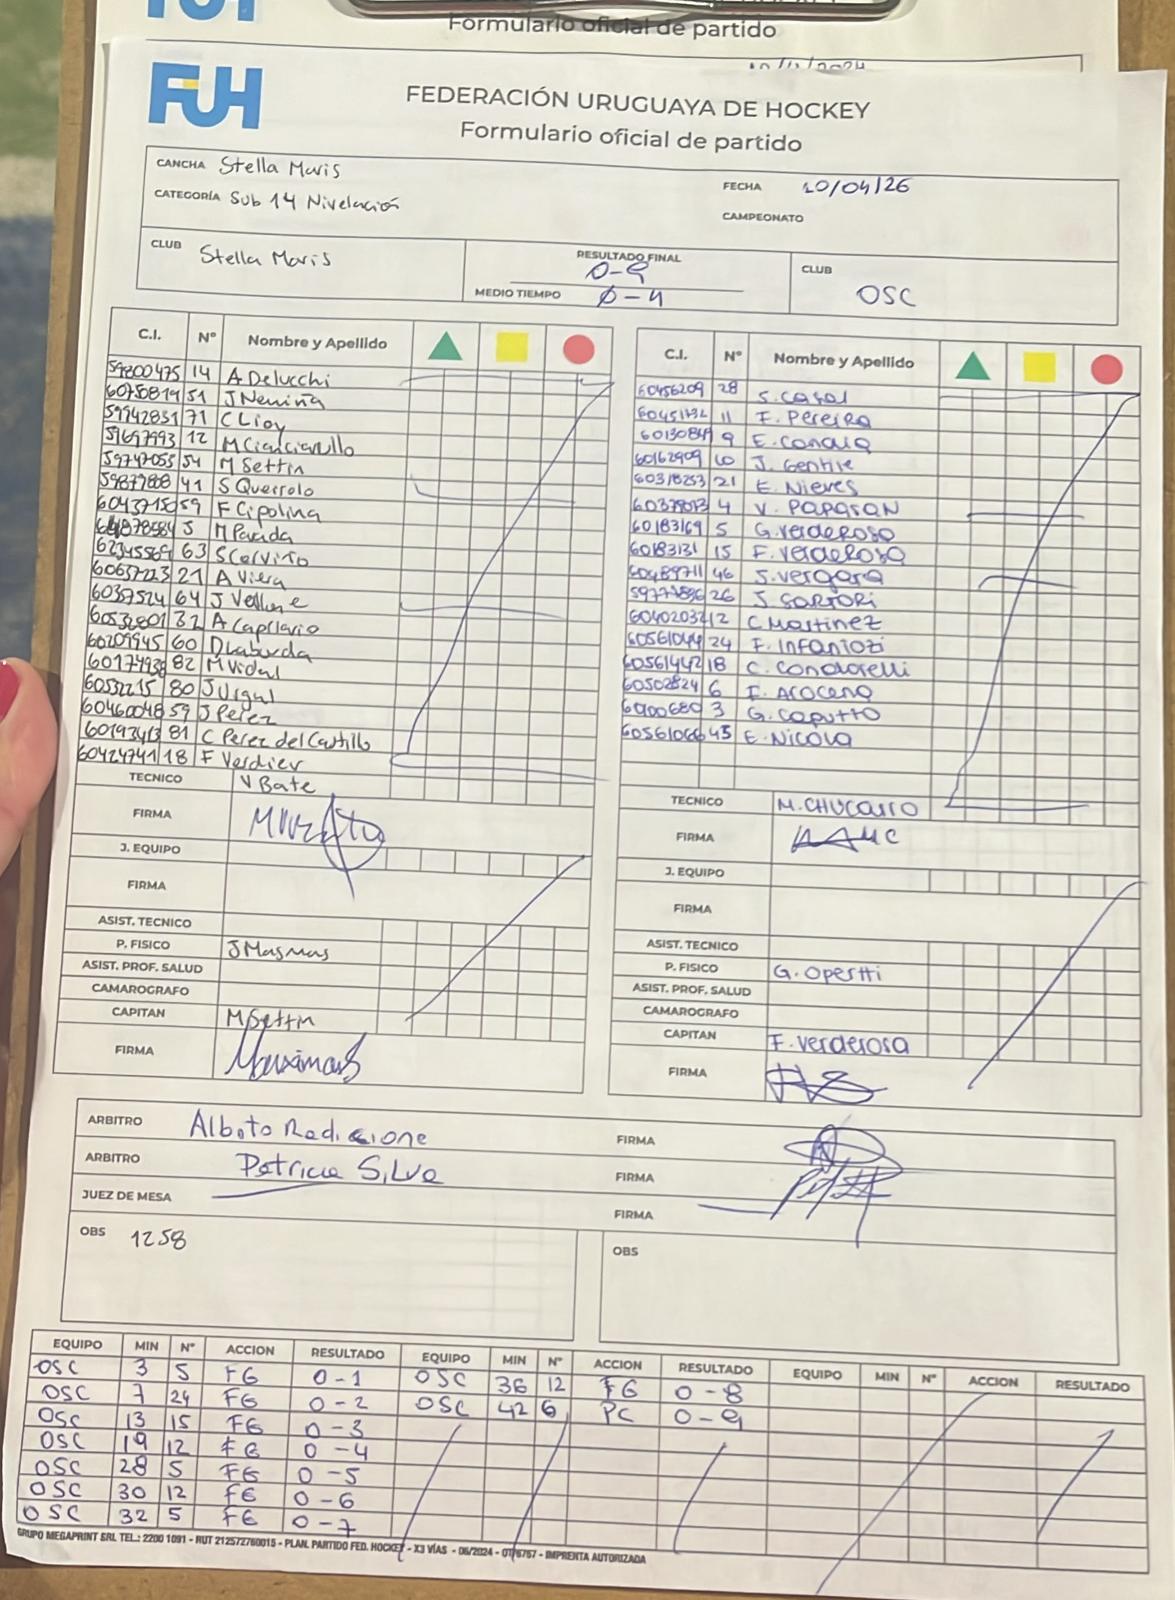 Formulario oficial de partido
FUH
FEDERACIÓN URUGUAYA DE HOCKEY
Formulario oficial de partido
CANCHA Stella Maris
FECHA 20/04/26
CATEGORÍA Sub 14 Nivelación
CAMPEONATO
CLUB Stella Maris
RESULTADO FINAL 0-9
MEDIO TIEMPO 0-4
CLUB OSC
C.I. Nº Nombre y Apellido
59800475 14 A Delucchi
60750819 51 J Neniña
59942851 71 C Lioy
51697993 12 M Cianciarullo
59747055 54 M Settin
59877808 41 S Queirolo
60437150 59 F Cipolina
5 M Parada
62345569 63 S Cerviño
60637223 21 A Viera
60397524 64 J
60532801 32 A Capllario
60209945 60 D Laburda
60174938 82 M Vidal
60532215 80 J Urgal
60460048 59 J Perez
60193413 81 C Perez del Castillo
60424741 18 F Verdier
TECNICO V Bate
FIRMA
J. EQUIPO
FIRMA
ASIST. TECNICO
P. FISICO J Masmas
ASIST. PROF. SALUD
CAMAROGRAFO
CAPITAN M Settin
FIRMA
C.I. Nº Nombre y Apellido
60456209 28 S. Casal
60451732 11 F. Pereira
60130849 9 E. Conaia
60162909 10 J. Gentile
60318253 21 E. Nieves
60379013 4 V. PAPARAN
60183169 5 G. Verderosa
60183131 15 F. Verderosa
60489711 46 S. Vergara
59771896 26 J. SARTORI
60402034 12 C Martinez
60561044 24 F. Infantozi
60561442 18 C. Condorelli
60502824 6 F. Arocena
60100680 3 G. Caputto
60561066 45 E. Nicola
TECNICO M. CHUCARRO
FIRMA
J. EQUIPO
FIRMA
ASIST. TECNICO
P. FISICO G. Opertti
ASIST. PROF. SALUD
CAMAROGRAFO
CAPITAN F. Verderosa
FIRMA
ARBITRO Alberto Redicione FIRMA
ARBITRO Patricia Silva FIRMA
JUEZ DE MESA FIRMA
OBS 1258
OBS
EQUIPO MIN Nº ACCION RESULTADO EQUIPO MIN Nº ACCION RESULTADO EQUIPO MIN Nº ACCION RESULTADO
OSC 3 5 FG 0-1 OSC 36 12 FG 0-8
OSC 7 24 FG 0-2 OSC 42 6 PC 0-9
OSC 13 15 FG 0-3
OSC 19 12 FG 0-4
OSC 28 5 FG 0-5
OSC 30 12 FG 0-6
OSC 32 5 FG 0-7
GRUPO MEGAPRINT SRL TEL.: 2200 1091 - RUT 212572760015 - PLAN. PARTIDO FED. HOCKEY - X3 VÍAS - 06/2024 - OT/6767 - IMPRENTA AUTORIZADA